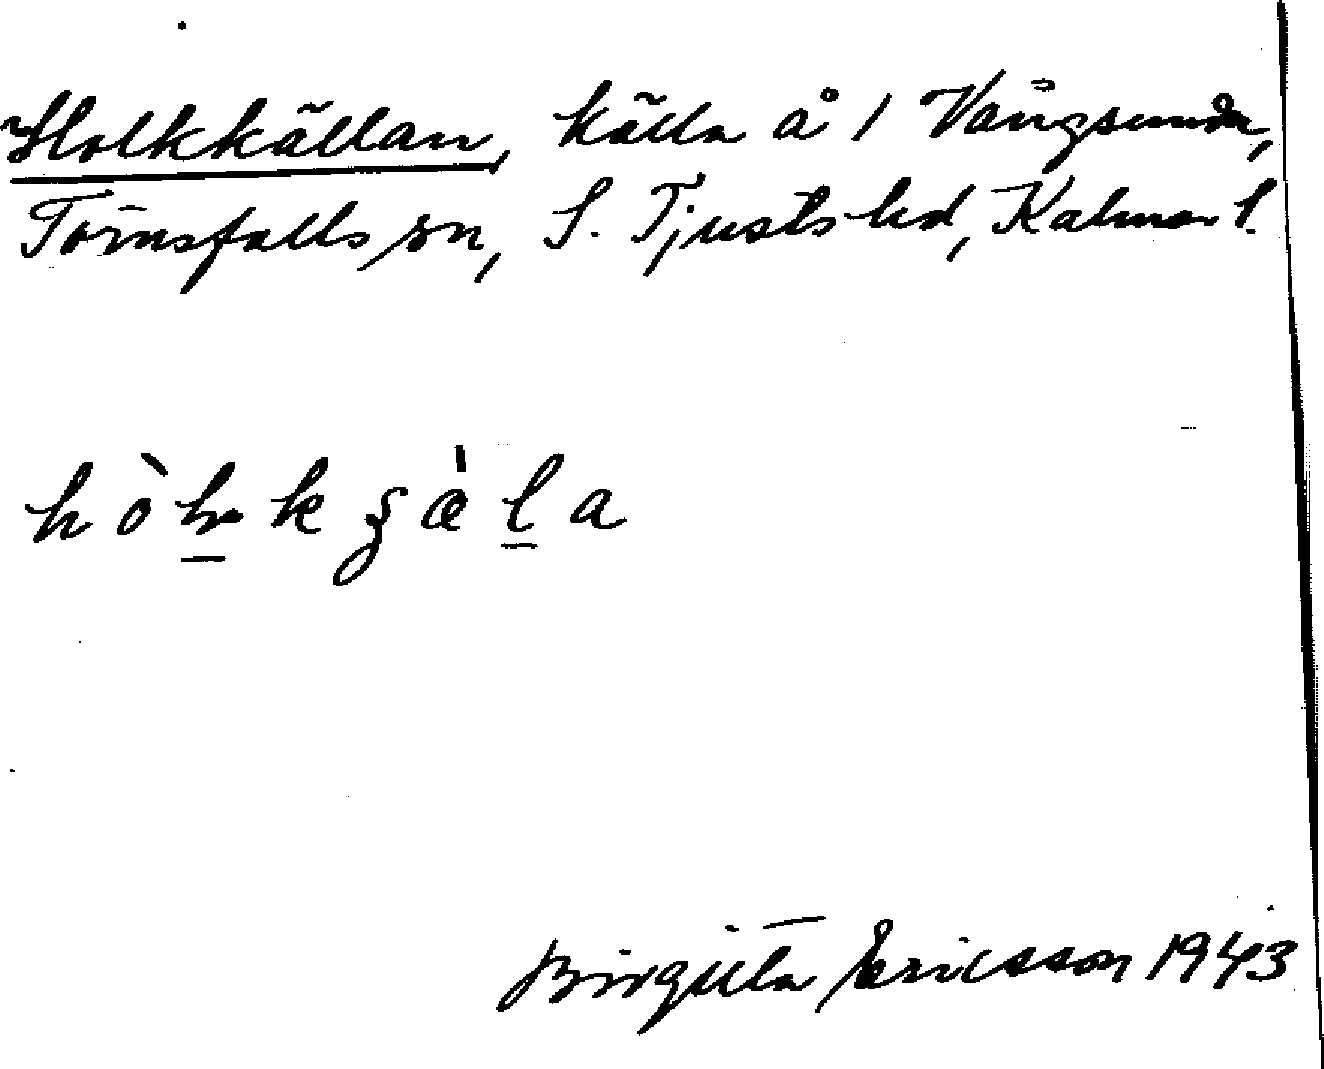 Holkkällan, källa å 1 Vångsunda,
Törnsfalls sn, S. Tjusts hd, Kalmar l.
Birgitta Ericsson 1943